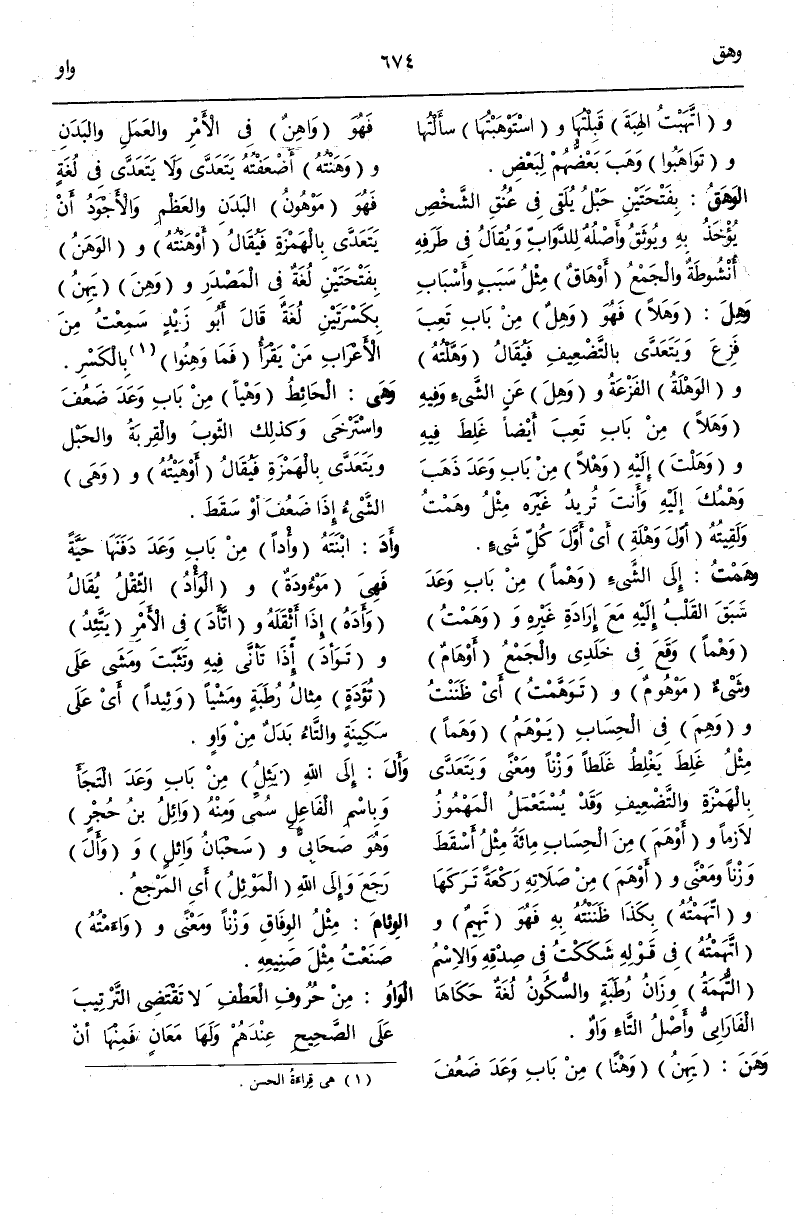 وهق
٦٧٤
واو
و ( اتَّهَبْتُ الهِبَةَ ) قَبِلْتُها و ( اسْتَوْهَبْتُها ) سأَلْتُها
و ( تَوَاهَبُوا ) وَهَبَ بَعْضُهُمْ لِبَعْضٍ .
الوَهَقُ : بِفَتْحَتَيْنِ حَبْلٌ يُلْقَى فِى عُنُقِ الشَّخْصِ
يُؤْخَذُ بِهِ ويُوثَقُ وأَصْلُهُ لِلدَّوَابِّ وَيُقَالُ فى طَرَفِهِ
أُنْشُوطَةٌ والْجَمْعُ ( أَوْهَاقٌ ) مِثْلُ سَبَبٍ وأَسْبَابٍ
وَهِلَ : ( وَهَلاً ) فَهُوَ ( وَهِلٌ ) مِنْ بَابِ تَعِبَ
فَزِعَ وَيَتَعَدَّى بالتَّضْعِيفِ فَيُقَالُ ( وَهَّلْتُهُ )
و ( الوَهْلَةُ ) الفَزْعَةُ و ( وَهِلَ ) عَنِ الشَّىءِ وَفِيهِ
( وَهَلاً ) مِنْ بَابِ تَعِبَ أَيْضاً غَلِطَ فِيهِ
و ( وَهَلْتَ ) إِلَيْهِ ( وَهْلاً ) مِنْ بابِ وَعَدَ ذَهَبَ
وَهْمُكَ إِلَيْهِ وَأَنْتَ تُرِيدُ غَيْرَه مِثْلُ وَهَمْتُ
وَلَقِيتُهُ ( أَوّلَ وَهْلَةٍ ) أَىْ أَوَّلَ كُلِّ شَىءٍ .
وهَمْتُ : إِلَى الشَّىءِ ( وَهْماً ) مِنْ بَابِ وَعَدَ
سَبَقَ القَلْبُ إِلَيْهِ مَعَ إِرَادَةِ غَيْرِهِ وَ ( وَهَمْتُ )
( وَهْماً ) وَقَعَ فِى خَلَدِى والْجَمْعُ ( أَوْهَامٌ )
وشَىْءٌ ( مَوْهُومٌ ) و ( تَوَهَّمْتُ ) أَىْ ظَنَنْتُ
و ( وَهِمَ ) فِى الْحِسَابِ ( يَوْهَمُ ) ( وَهَماً )
مِثْلُ غَلِطَ يَغْلَطُ غَلَطاً وَزْناً ومَعْنًى وَيَتَعَدَّى
بِالْهَمْزَةِ والتَّضْعِيفِ وَقَدْ يُسْتَعْمَلُ الْمَهْمُوزُ
لَازِماً و ( أَوْهَمَ ) مِنَ الْحِسَابِ مِائَةً مِثْلُ أَسْقَطَ
وَزْناً ومَعْنًى و ( أَوْهَمَ ) مِنْ صَلَاتِهِ رَكْعَةً تَرَكَهَا
و ( اتَّهَمْتُهُ ) بِكَذَا ظَنَنْتُهُ بِهِ فَهُوَ ( تَهِيمٌ ) و
( اتَّهَمْتُهُ ) فِى قَوْلِهِ شَكَكْتُ فى صِدْقِهِ وَالاِسْمُ
( التُّهَمَةُ ) وِزَانُ رُطَبَةٍ والسُّكُونُ لُغَةٌ حَكَاهَا
الْفَارَابِىُّ وأَصْلُ التَّاءِ وَاوٌ .
وَهَنَ : ( يَهِنُ ) ( وَهْنًا ) مِنْ بَابِ وَعَدَ ضَعُفَ
فَهُوَ ( وَاهِنٌ ) فِى الْأَمْرِ والعَمَلِ والبَدَنِ
و ( وَهَنْتُهُ ) أَضْعَفْتُهُ يَتَعَدَّى وَلَا يَتَعَدَّى فِى لُغَةٍ
فَهُوَ ( مَوْهُونُ ) البَدَنِ والعَظْمِ وَالْأَجْوَدُ أَنْ
يَتَعَدَّى بِالْهَمْزَةِ فَيُقَالُ ( أَوْهَنْتُهُ ) و ( الوَهَنُ )
بِفَتْحَتَيْنِ لُغَةٌ فِى الْمَصْدَرِ و ( وَهِنَ ) ( يَهِنُ )
بِكَسْرَتَيْنِ لُغَةٌ قَالَ أَبُو زَيْدٍ سَمِعْتُ مِنَ
الْأَعْرَابِ مَنْ يَقْرَأُ ( فَمَا وَهِنُوا ) (١) بِالْكَسْرِ .
وَهَى : الْحَائِطُ ( وَهْياً ) مِنْ بَابِ وَعَدَ ضَعُفَ
واسْتَرْخَى وَكذلِك الثّوبُ والْقِرْبَةُ والحَبْل
ويَتَعَدَّى بِالْهَمْزَةِ فَيُقَالُ ( أَوْهَيْتُهُ ) و ( وَهَى )
الشَّىْءُ إِذَا ضَعُفَ أَوْ سَقَطَ .
وأَدَ : ابْنَتَهُ ( وأْداً ) مِنْ بَابِ وَعَدَ دَفَنَهَا حَيَّةً
فَهِىَ ( مَوْءُودَةٌ ) و ( الْوَأْدُ ) الثِّقْلُ يُقَالُ
( وَأَدَهُ ) إِذَا أَثْقَلَهُ و ( اتَّأَدَ ) فِى الْأَمْرِ ( يَتَّئِدُ )
و ( تَوَأَدَ ) إِذَا تَأَنَّى فِيهِ وتَثَبَّتَ ومَشَى عَلَى
( تُؤَدَةٍ ) مِثالُ رُطَبَةٍ ومَشْياً ( وَئِيداً ) أَىْ عَلَى
سَكِينَةٍ والتَّاءُ بَدَلٌ مِنْ وَاوٍ .
وَأَلَ : إِلَى اللهِ ( يَئِلُ ) مِنْ بَابِ وَعَدَ الْتَجَأَ
وَبِاسْمِ الْفَاعِلِ سُمِّىَ ومِنْهُ ( وَائِلُ بنُ حُجْرٍ )
وَهُوَ صَحَابِىٌّ و ( سَحْبَانُ وَائِلٍ ) وَ ( وَأَلَ )
رَجَعَ وَإِلَى اللهِ ( الْمَوْئِلُ ) أَىِ المَرْجِعُ .
الوِئامَ : مِثْلُ الوِفَاقِ وَزْناً ومَعْنًى و ( وَاءَمْتُهُ )
صَنَعْتُ مِثْلَ صَنِيعِهِ .
الْوَاوُ : مِنْ حُرُوفِ الْعَطْفِ لَا تَقْتَضِى التَّرْتِيبَ
عَلَى الصَّحِيحِ عِنْدَهُمْ وَلَهَا مَعَانٍ فَمِنْهَا أَنْ
(١) هى قِراءةُ الحسن .